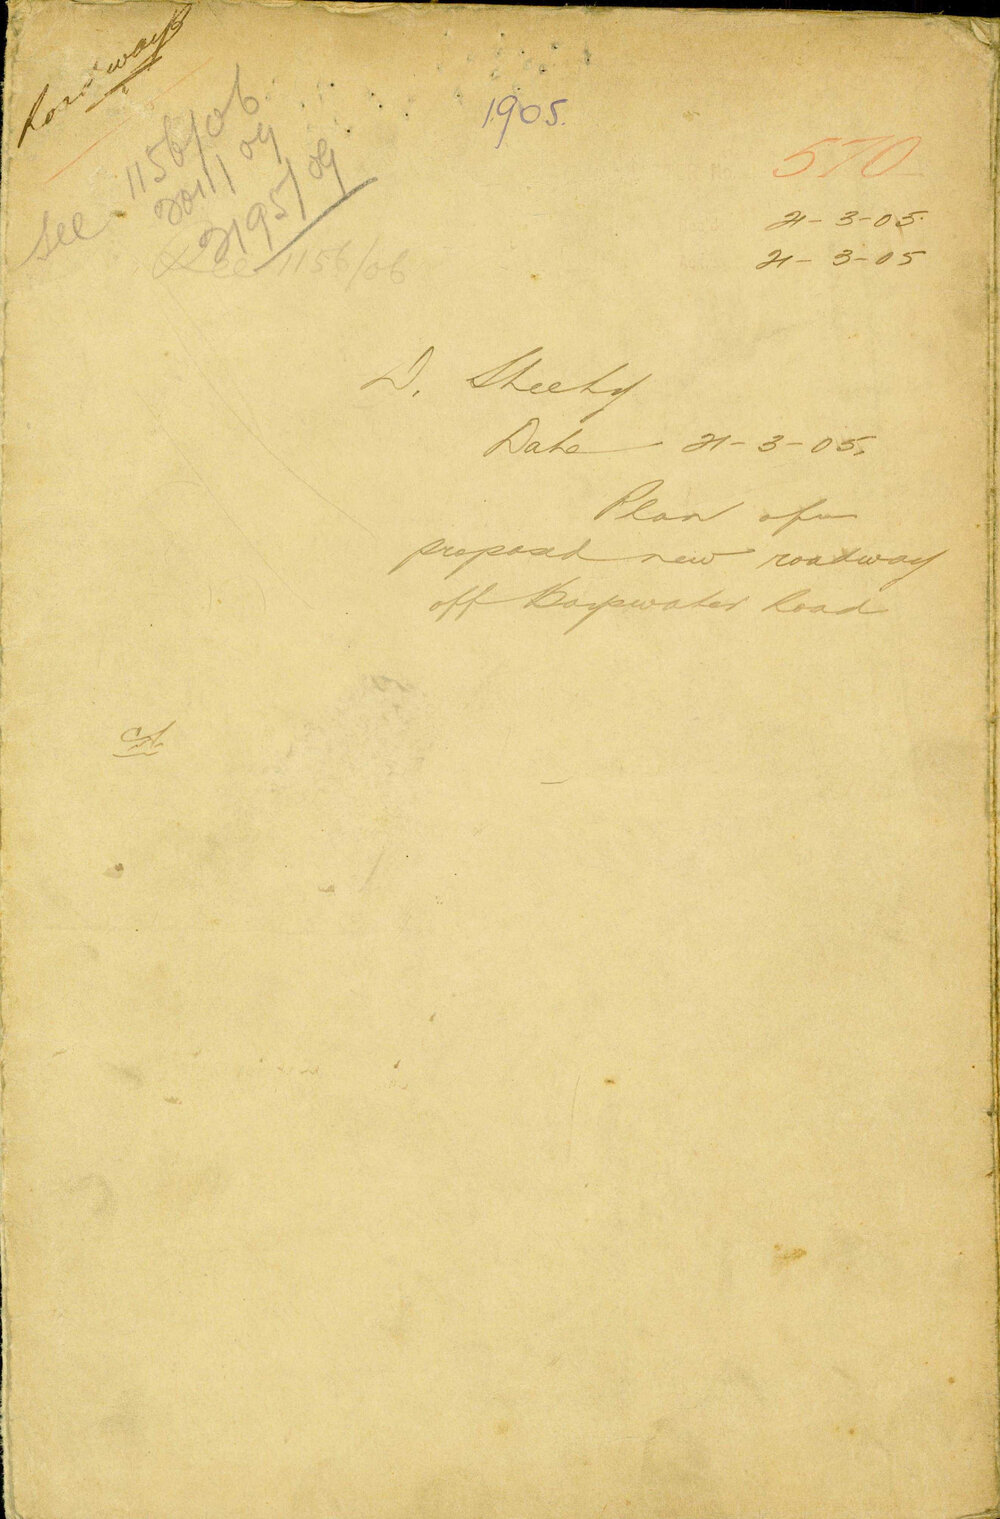 Roadways
1905.
570
See 1156/06
2011/09
2195/09
See 1156/06
21-3-05.
21-3-05
D. Sheehy
Date 21-3-05.
Plan of
proposed new roadway
off Bayswater Road